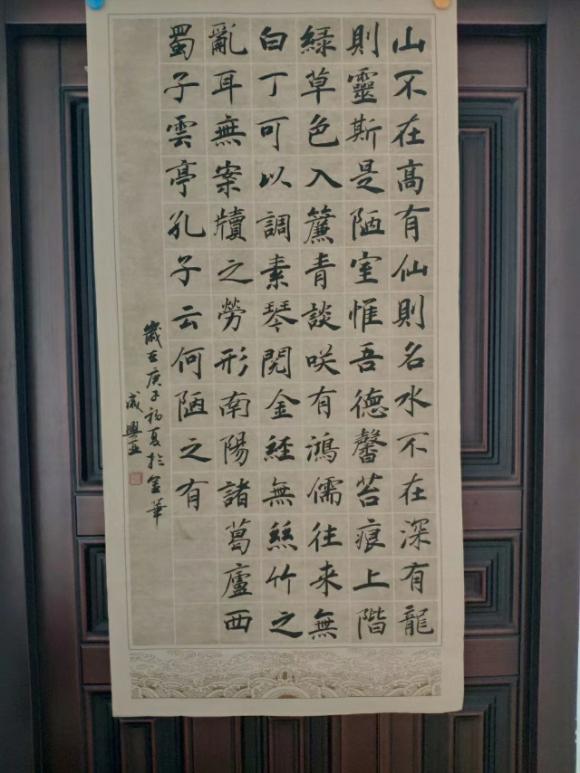 山不在高有仙則名水不在深有龍
則靈斯是陋室惟吾德馨苔痕上階
緑草色入簾青談咲有鴻儒往来無
白丁可以調素琴閱金経無絲竹之
亂耳無案牘之勞形南陽諸葛廬西
蜀子雲亭孔子云何陋之有
歲在庚子初夏於金華
成興亚